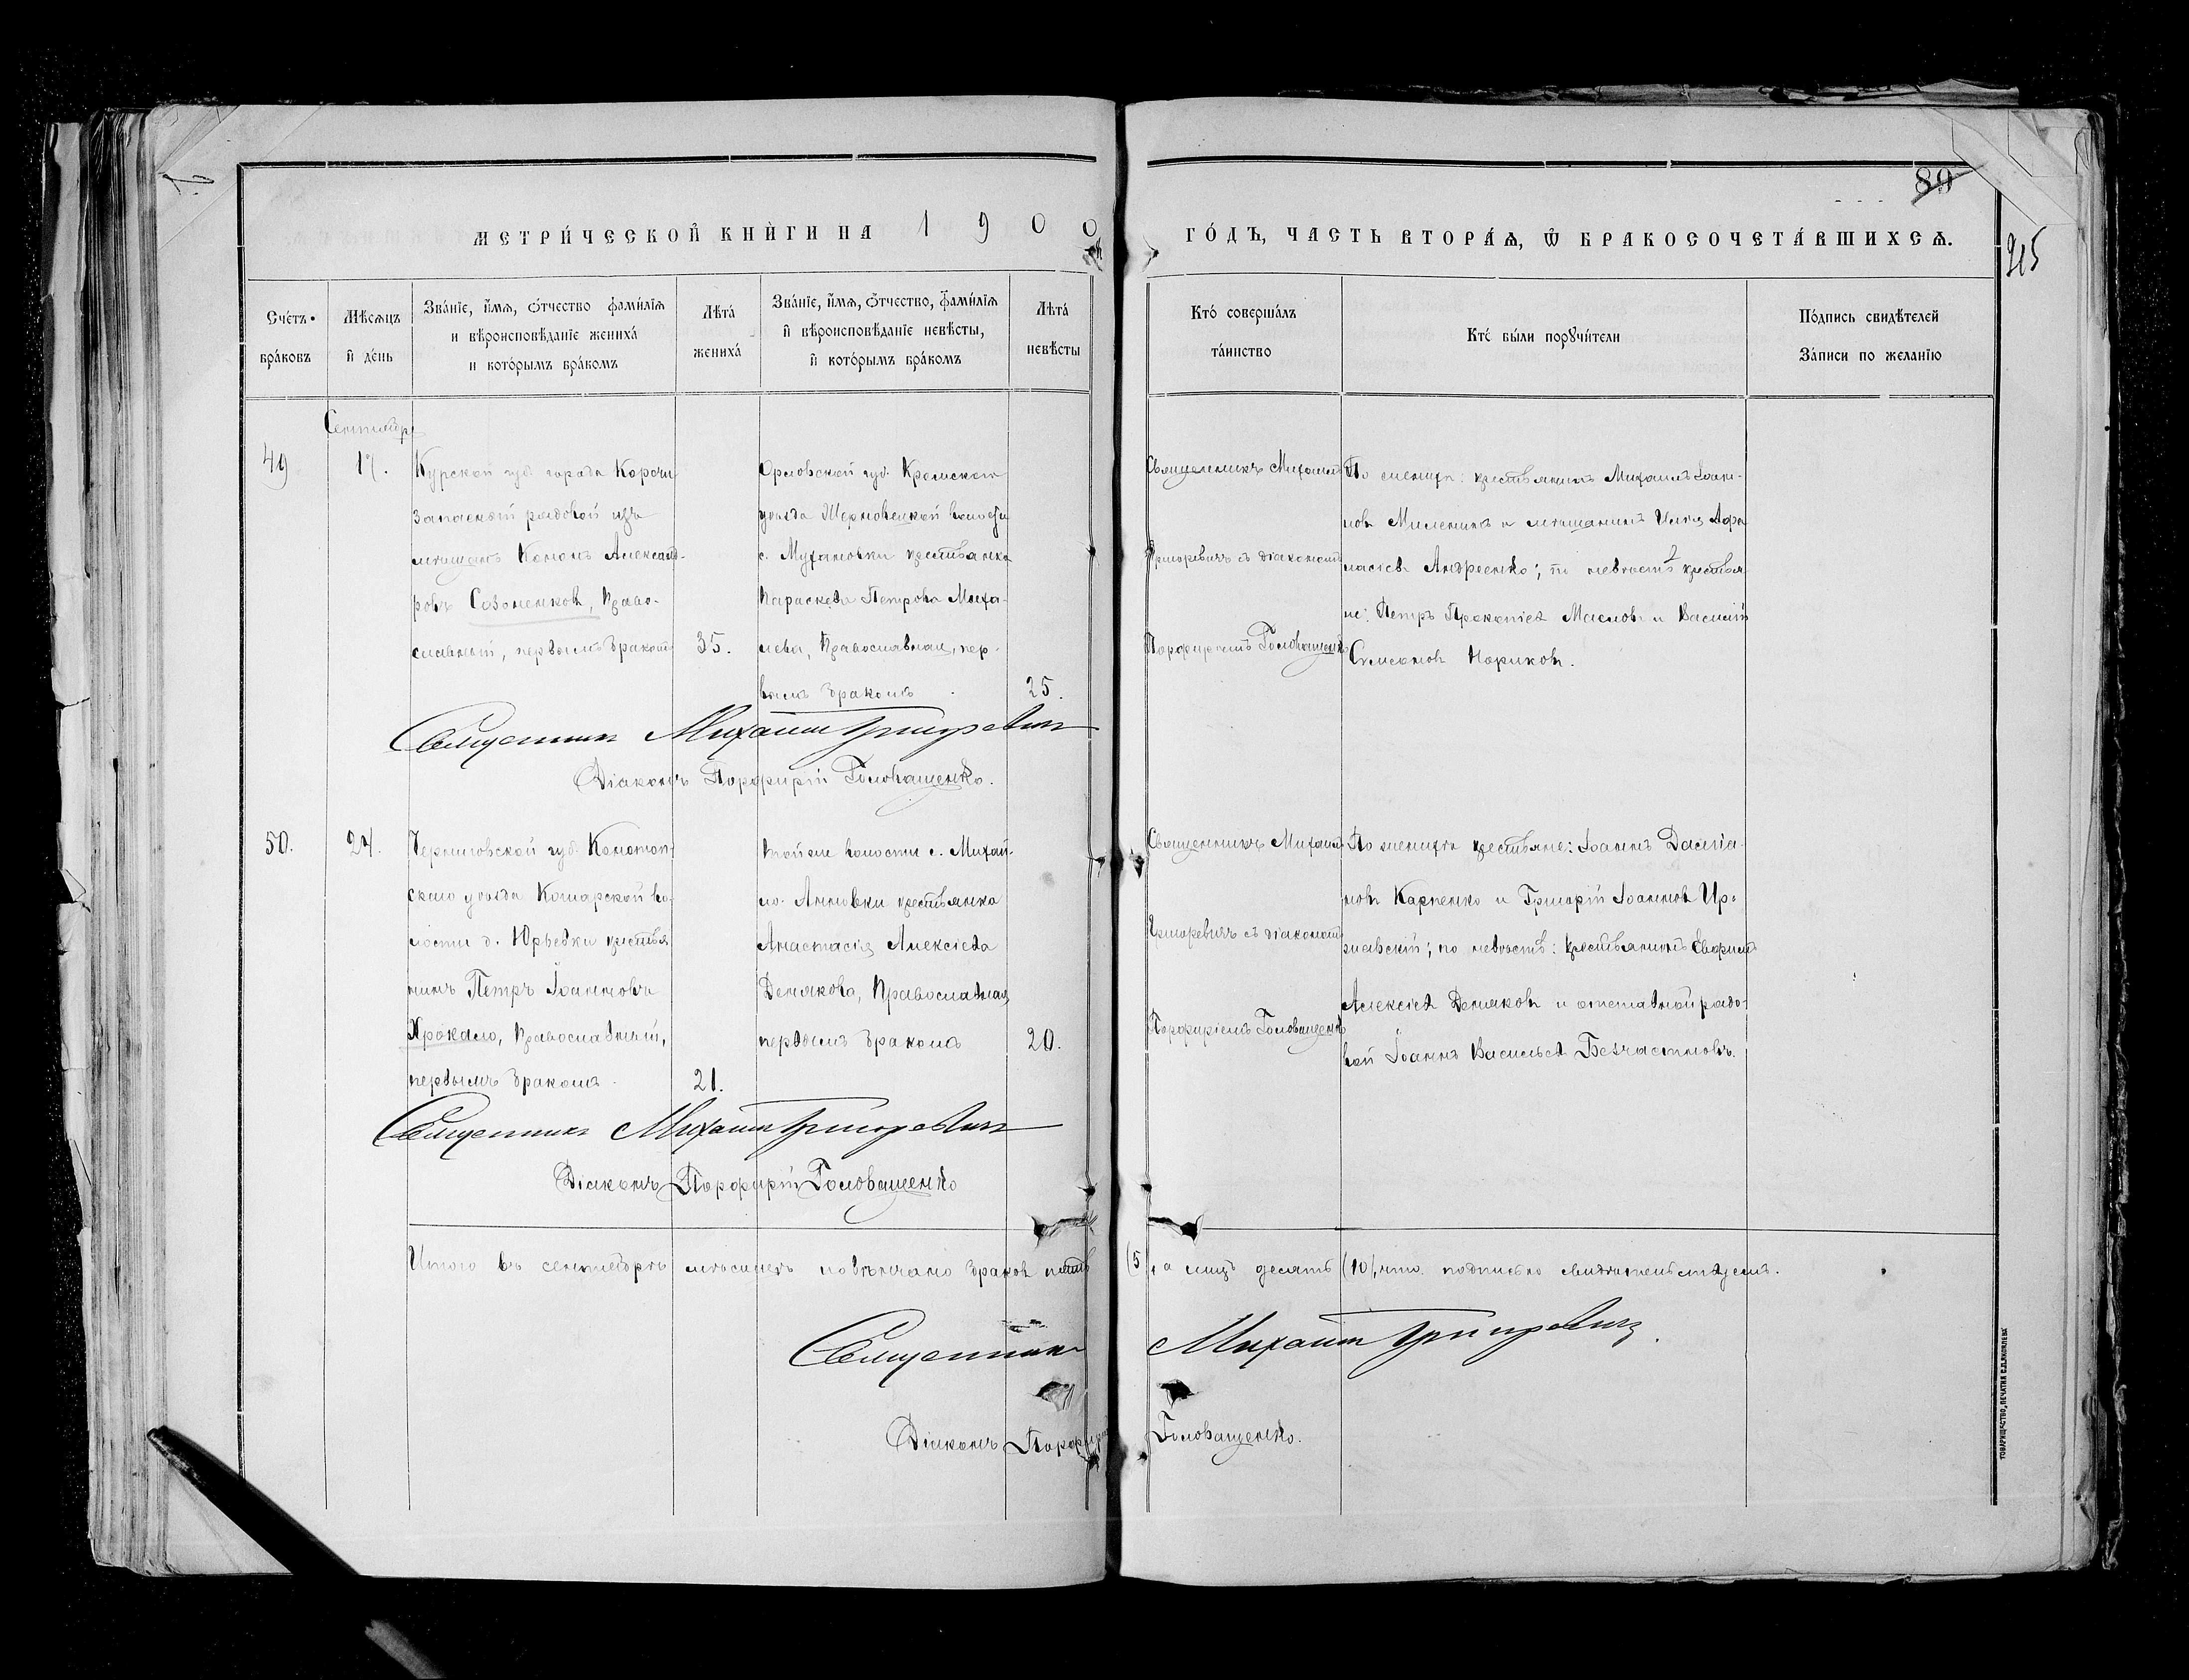 89
215
МЕТРИ́ЧЕСКОЙ КНИ́ГИ НА 1900
ГО́ДЪ, ЧАСТЬ ВТОРА́Ѧ, Ѿ БРАКОСОЧЕТА́ВШИХСѦ.
Сче́тъ
бра́ковъ
Мѣ́сѧцъ
и҆ де́нь
Зва́нїе, и҆́мѧ, ѻ҆́тчество фами́лїѧ
и вѣроисповѣ́данїе жениха́
и кото́рымъ бра́комъ
Лѣ́та
жениха́
Зва́нїе, и҆́мѧ, ѻ҆́тчество, фами́лїѧ
и҆ вѣроисповѣ́данїе невѣ́сты,
и҆ кото́рымъ бра́комъ
Лѣ́та
невѣ́сты
Кто́ соверша́лъ
та́инство
Кто́ бы́ли порꙋчи́тели
По́дпись свидѣ́телей
За́писи по жела́нїю
Сентябрь
49
17.
Курской губ. города Корочи
запасный рядовой изъ
мѣщанъ Кононъ Александ-
ровъ Созоненковъ, Право-
славный, первымъ бракомъ
35.
Орловской губ. Кромскаго
уѣзда волости
с. крестьянка
Параскева Петрова
Православная, пер-
вымъ бракомъ
25.
Священникъ Михаилъ
Григоревичъ съ діакономъ
Порфиріемъ Головащенко
По женихѣ: крестьянинъ Михаилъ Іоан-
новъ и мѣщанинъ Илія Афа-
насіевъ Андреенко; по невѣстѣ крестья-
не: Петръ Прокопіевъ Масловъ и Василій
Симеоновъ
Священникъ Михаилъ Григоревичъ
Діаконъ Порфирій Головащенко.
50.
24.
Черниговской губ. Конотоп-
скаго уѣзда Кошарской во-
лости д. Юрьевки крестья
нинъ Петръ Іоанновъ
Хрокало, Православный,
первымъ бракомъ
21.
Той же волости с. Михай-
ло-Анновки крестьянка
Анастасія Алексіева
Демякова, Православная,
первымъ бракомъ
20.
Священникъ Михаилъ
Григоревичъ съ діакономъ
Порфиріемъ Головащенко
По женихѣ крестьяне: Іоаннъ Даміа-
новъ Карпенко и Григорій Іоанновъ Ир-
жавскій; по невѣстѣ: крестьянинъ Евфимъ
Алексіевъ Демяковъ и отставной рядо-
вой Іоаннъ Васильевъ Безчастновъ.
Священникъ Михаилъ Григоревичъ
Діаконъ Порфирій Головащенко
Итого въ сентябрѣ мѣсяцѣ повѣнчано браковъ пять (5), а лицъ десять (10), что подписью свидѣтельствуемъ.
Священникъ Михаилъ Григоревичъ.
Діаконъ Порфирій Головащенко.
ТОВАРИЩЕСТВО „ПЕЧАТНЯ С.П. ЯКОВЛЕВА"